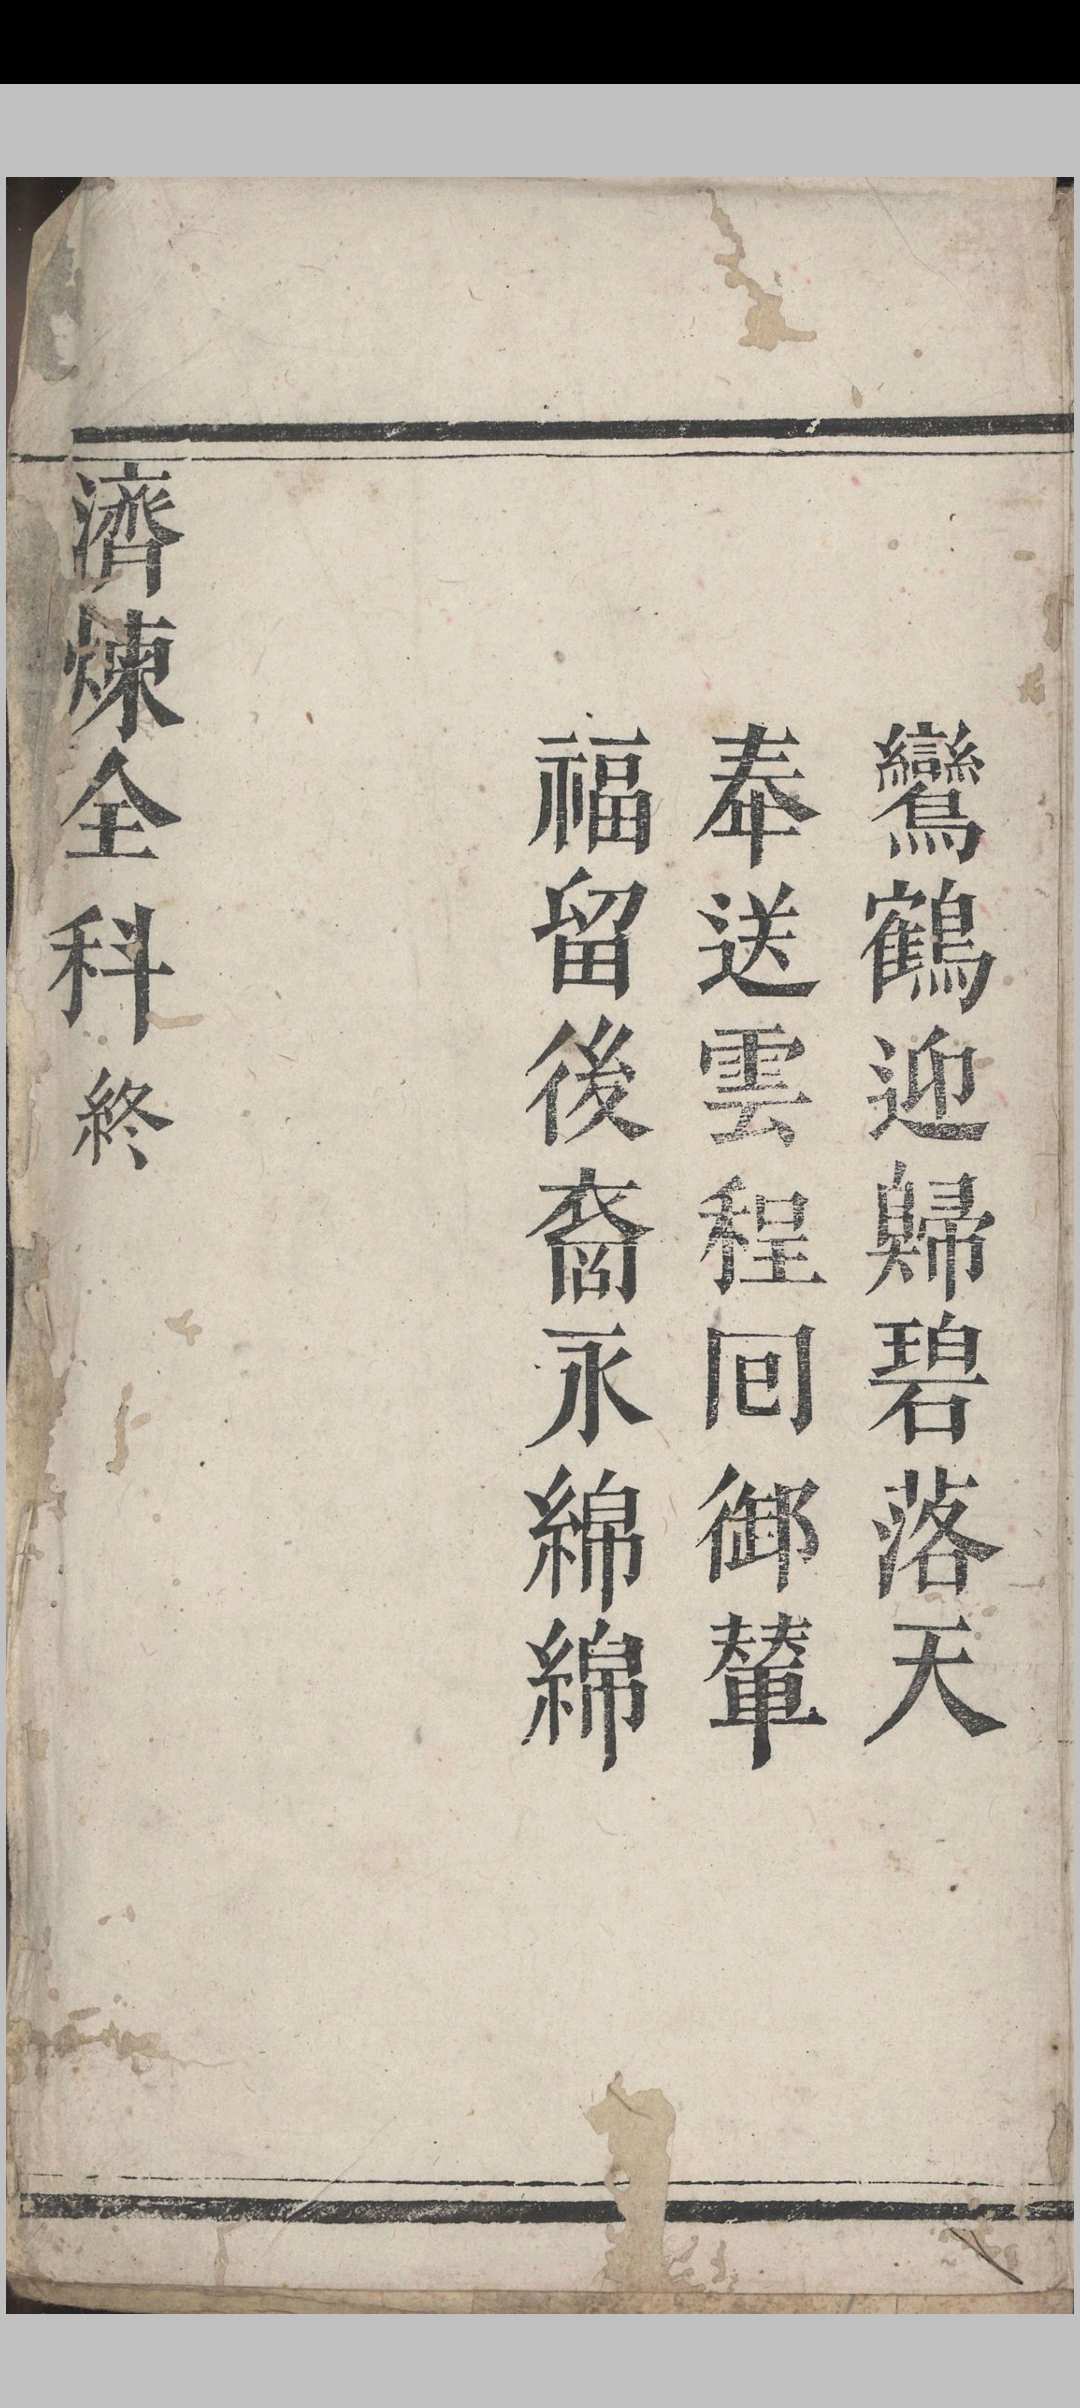 鸞鶴迎歸碧落天
奉送雲程囘御輦
福留後裔永綿綿
濟煉全科終